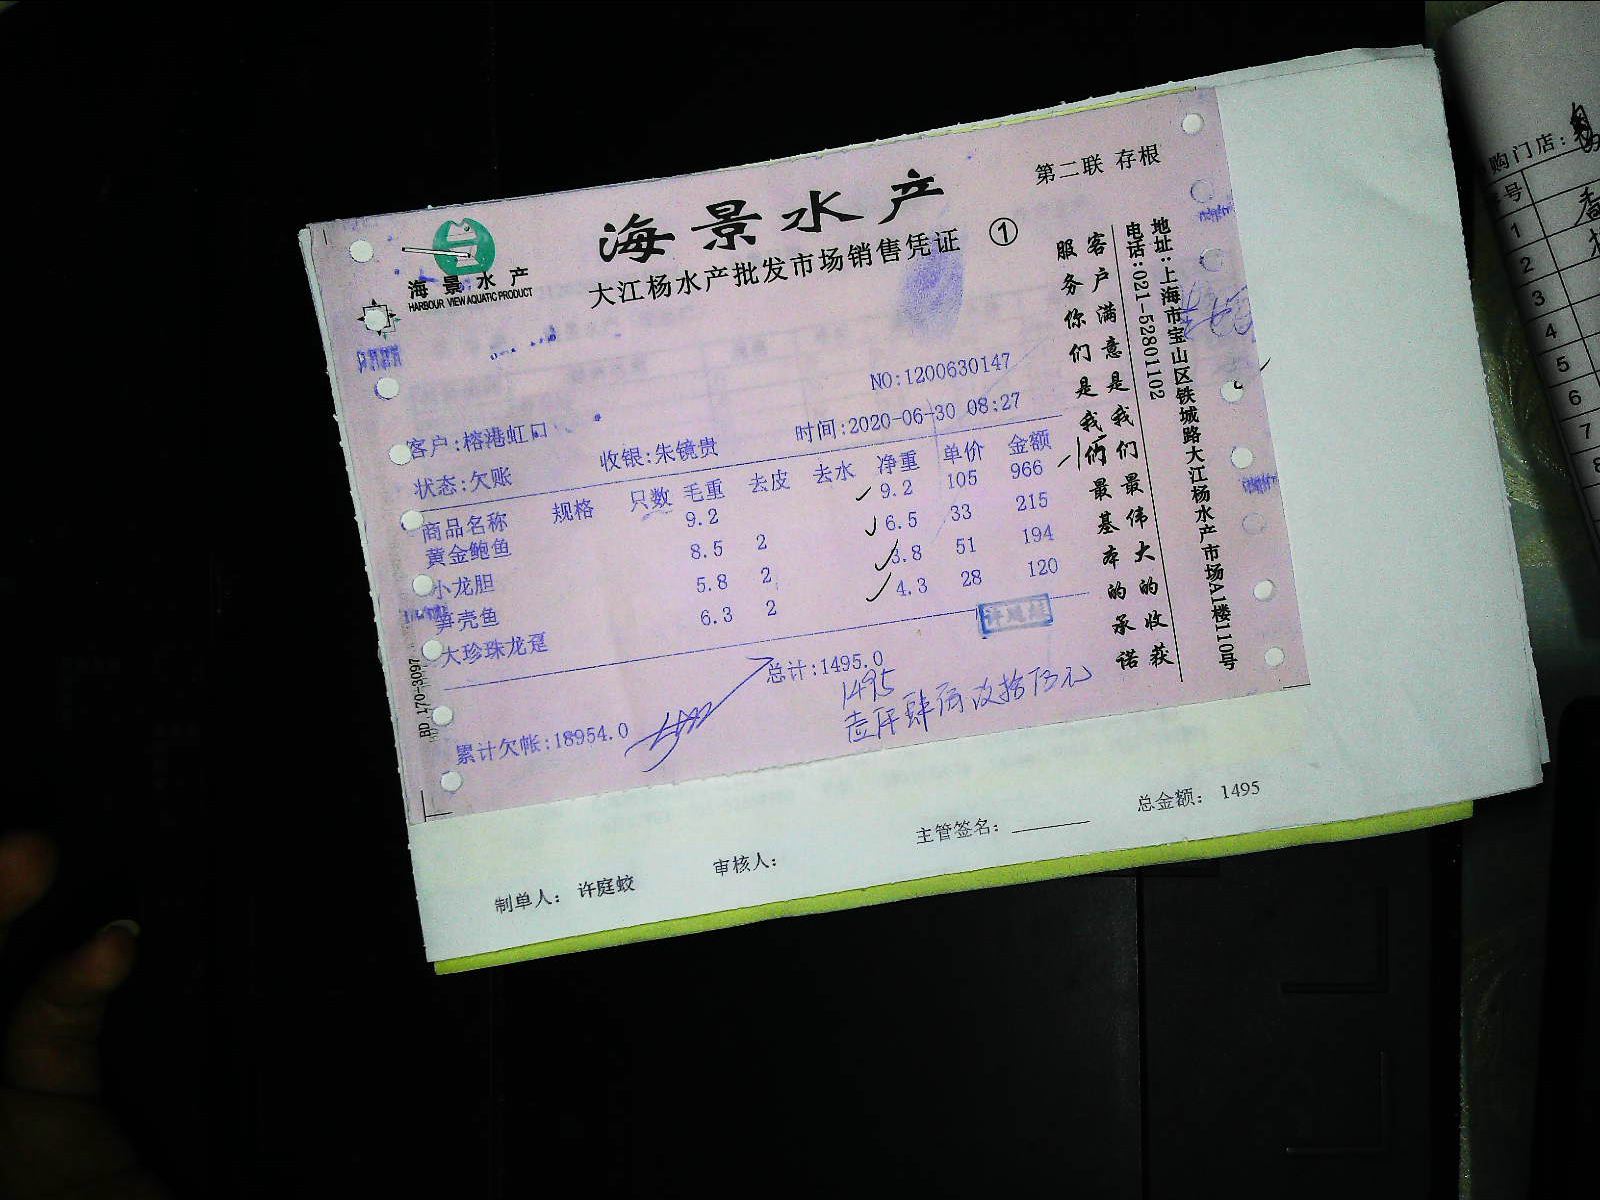 海景水产
HARBOUR VIEW AQUATIC PRODUCT
海景水产
大江杨水产批发市场销售凭证 ①
第二联 存根
NO:1200630147
客户:榕港虹口
收银:朱镜贵
时间:2020-06-30 08:27
状态:欠账
商品名称 规格 只数 毛重 去皮 去水 净重 单价 金额
黄金鲍鱼 9.2 9.2 105 966
小龙胆 8.5 2 6.5 33 215
笋壳鱼 5.8 2 3.8 51 194
大珍珠龙趸 6.3 2 4.3 28 120
总计:1495.0
1495
壹仟肆百玖拾伍元
累计欠帐:18954.0
BD 170-3097
客户满意是我们最伟大的收获
服务你们是我俩最基本的承诺
地址:上海市宝山区铁城路大江杨水产市场A1楼110号
电话:021-52801102
制单人: 许庭蛟
审核人:
主管签名:
总金额: 1495
购门店:
号
1
2
3
4
5
6
7
8